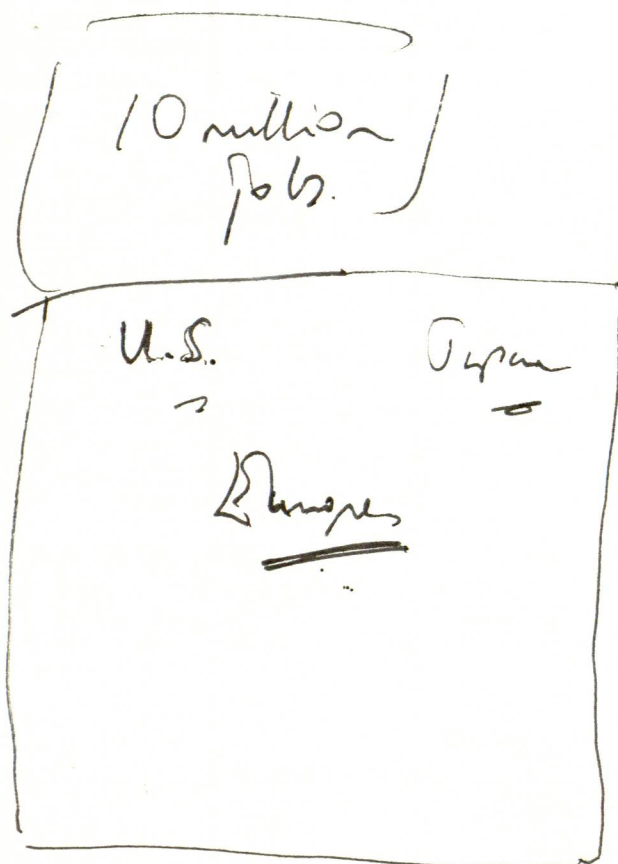 10 million
Jobs.
U.S. Japan
Europe